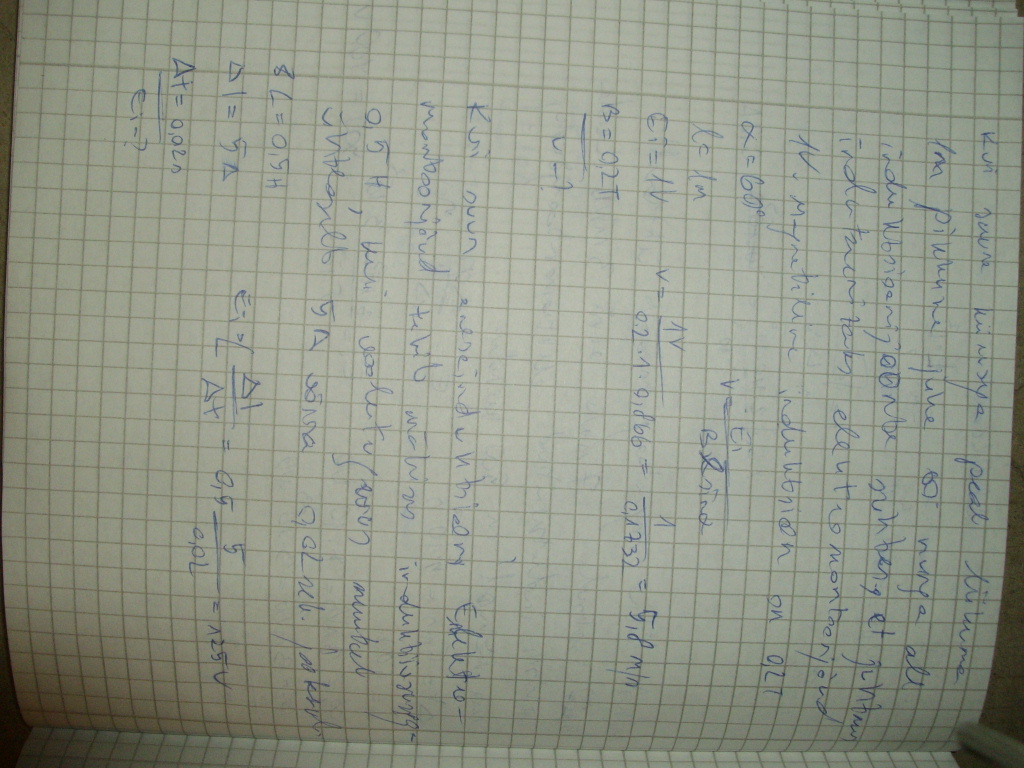 Kui suure kiirusega peab liikuma
1m pikkune juhe 60° nurga all
induktsioonijoonte suhtes, et juhtmes
indutseeritaks elektromotoorjõud
1V. Magnetiline induktsioon on 0,2T
α = 60°
l = 1m
Ei = 1V
B = 0,2T
v = ?
v = Ei / Bl sinα
v = 1V / 0,2 · 1 · 0,866 = 1 / 0,1732 = 5,8 m/s
Kui suur endainduktsiooni elektro-
motoorjõud tekib induktiivsusega
0,5 H, kui voolutugevus muutub
ühtlaselt 5A võrra 0,02 sek. jooksul
L = 0,5H
ΔI = 5A
Δt = 0,02s
Ei = ?
Ei = L ΔI / Δt = 0,5 5 / 0,02 = 125V